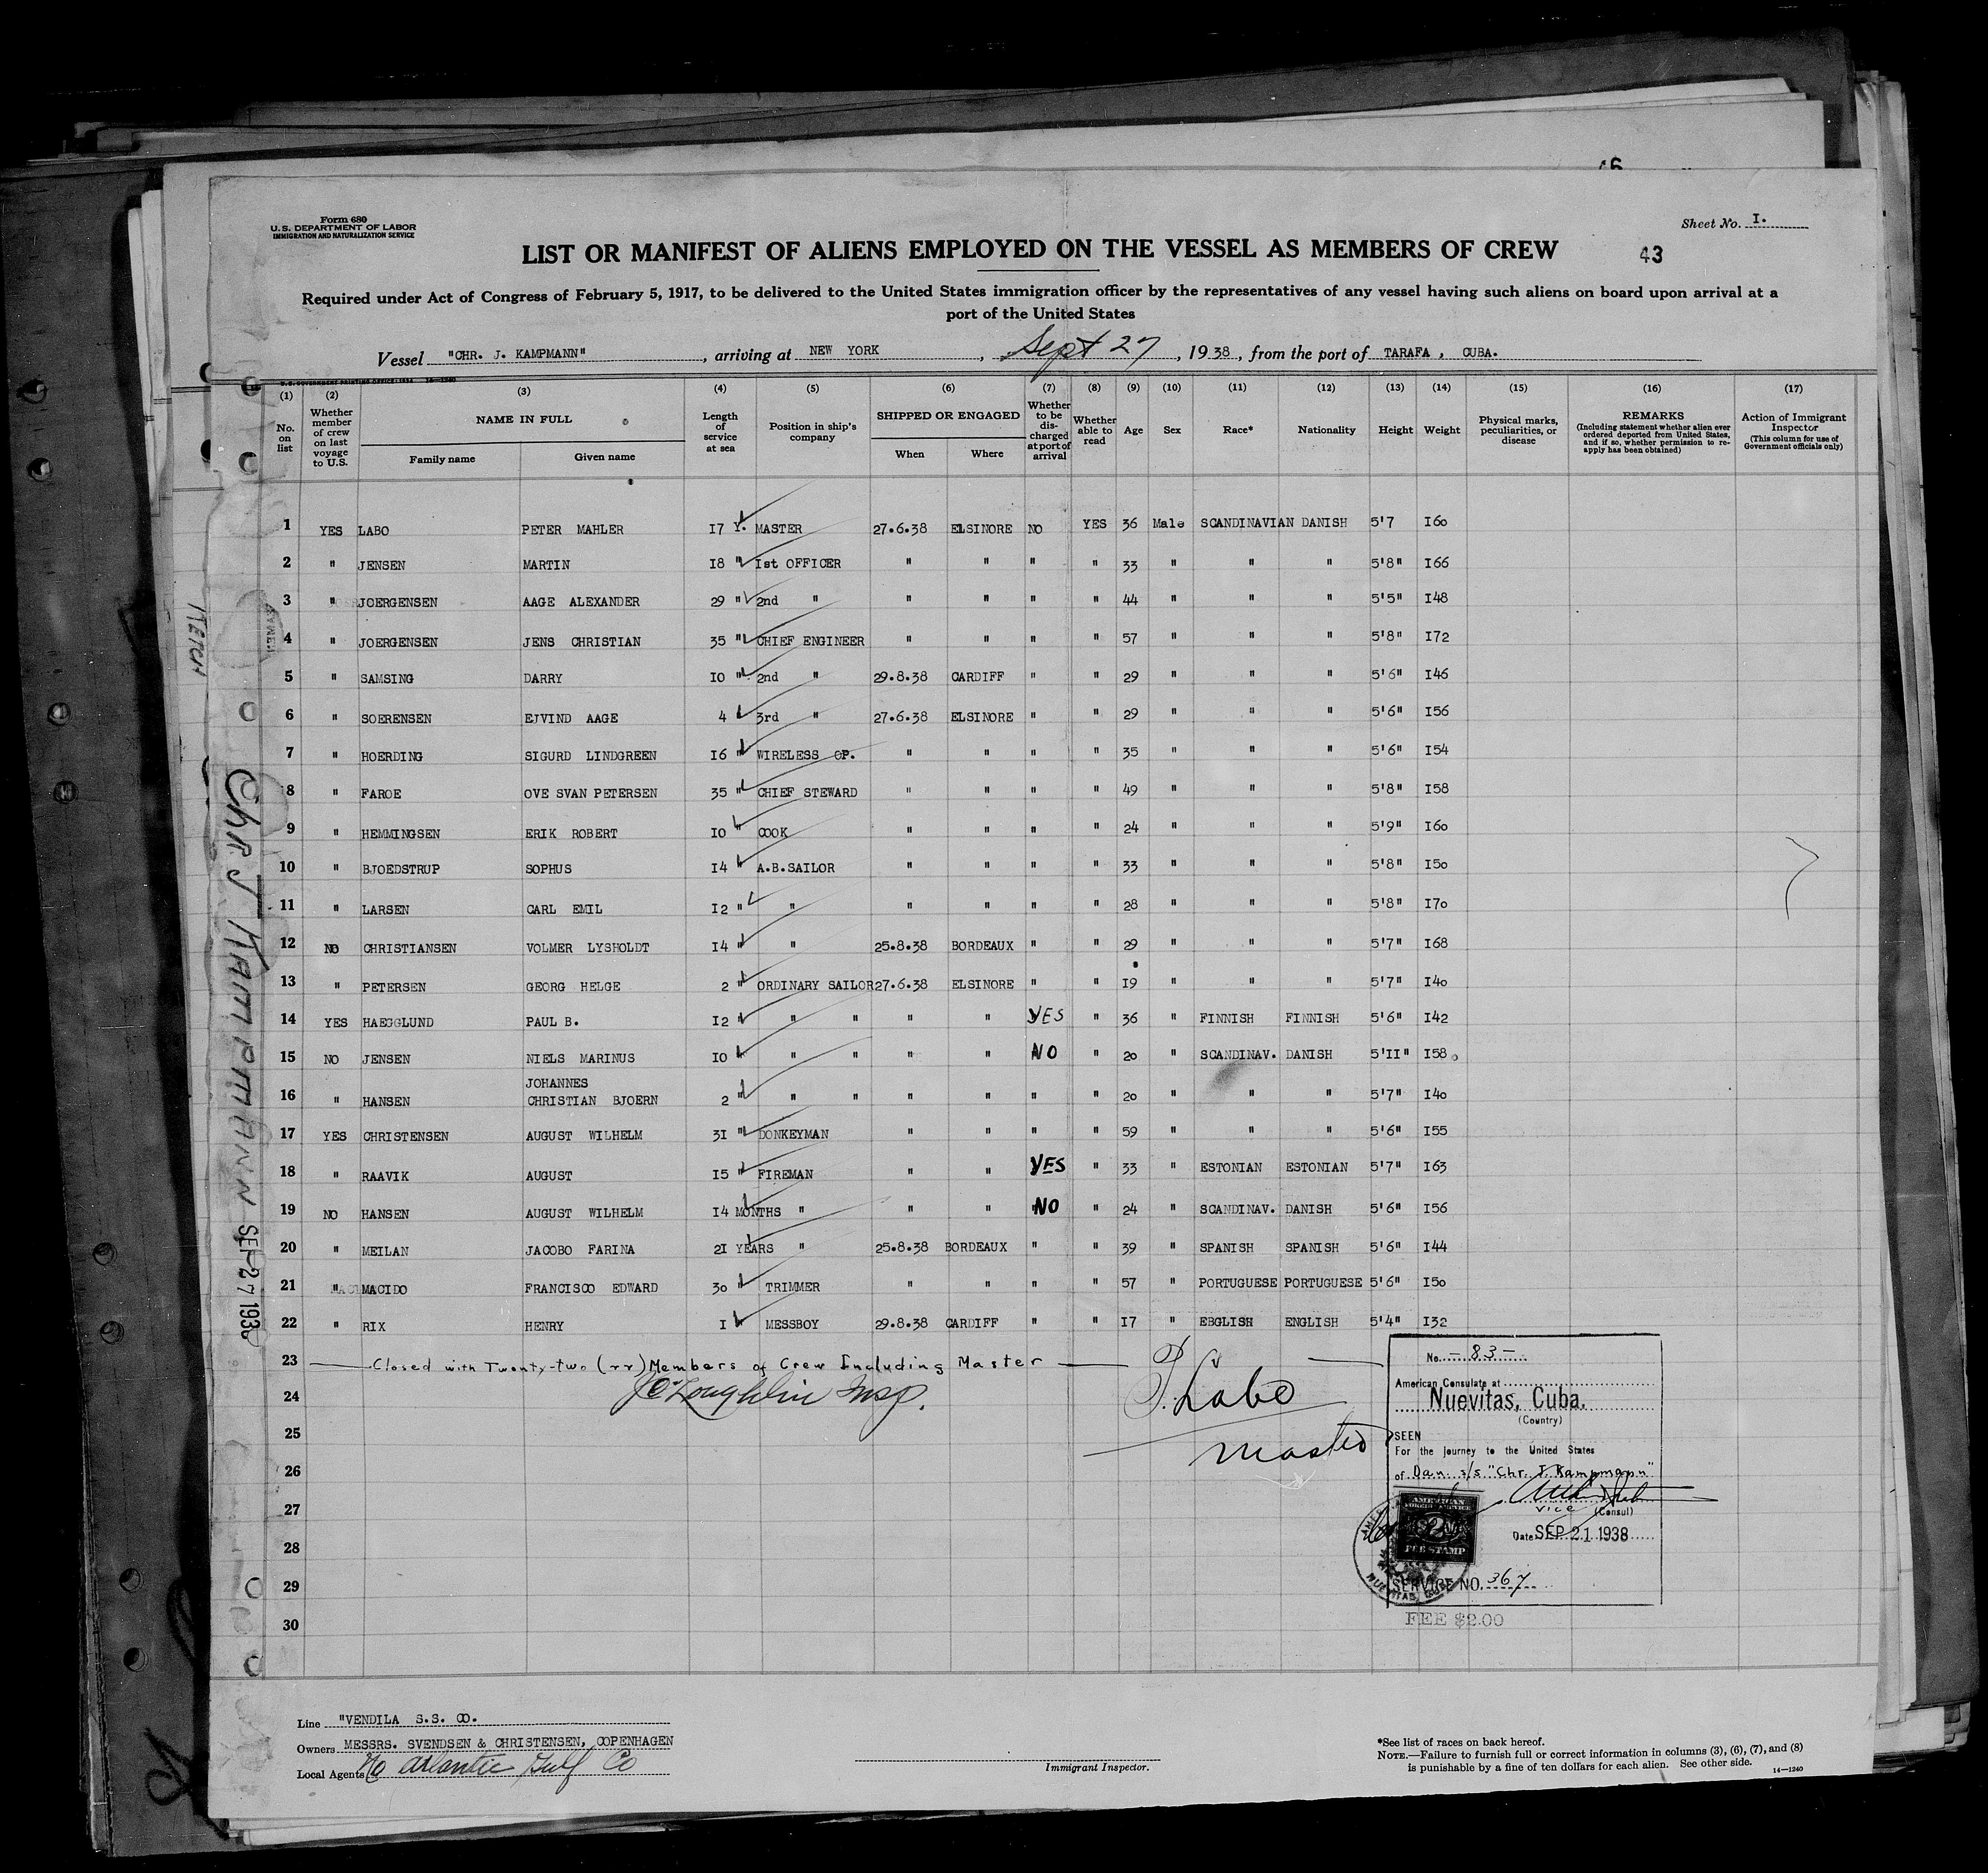 Form 680
U. S. DEPARTMENT OF LABOR
IMMIGRATION AND NATURALIZATION SERVICE
Sheet No. I.
LIST OR MANIFEST OF ALIENS EMPLOYED ON THE VESSEL AS MEMBERS OF CREW
43
Required under Act of Congress of February 5, 1917, to be delivered to the United States immigration officer by the representatives of any vessel having such aliens on board upon arrival at a
port of the United States
Vessel "CHR. J. KAMPMANN", arriving at NEW YORK, Sept 27, 1938, from the port of TARAFA, CUBA.
(1) (2) (3) (4) (5) (6) (7) (8) (9) (10) (11) (12) (13) (14) (15) (16) (17)
No. on list
Whether member of crew on last voyage to U.S.
NAME IN FULL
Family name
Given name
Length of service at sea
Position in ship's company
SHIPPED OR ENGAGED
When
Where
Whether to be discharged at port of arrival
Whether able to read
Age
Sex
Race*
Nationality
Height
Weight
Physical marks, peculiarities, or disease
REMARKS
(Including statement whether alien ever ordered deported from United States, and if so, whether permission to reapply has been obtained)
Action of Immigrant Inspector
(This column for use of Government officials only)
1 YES LABO PETER MAHLER I7 Y. MASTER 27.6.38 ELSINORE NO YES 36 Male SCANDINAVIAN DANISH 5'7 I60
2 " JENSEN MARTIN I8 " Ist OFFICER " " " " 33 " " " 5'8" I66
3 " JOERGENSEN AAGE ALEXANDER 29 " 2nd " " " " " 44 " " " 5'5" I48
4 " JOERGENSEN JENS CHRISTIAN 35 " CHIEF ENGINEER " " " " 57 " " " 5'8" I72
5 " SAMSING DARRY I0 " 2nd " 29.8.38 CARDIFF " " 29 " " " 5'6" I46
6 " SOERENSEN EJVIND AAGE 4 " 3rd " 27.6.38 ELSINORE " " 29 " " " 5'6" I56
7 " HOERDING SIGURD LINDGREEN I6 " WIRELESS OP. " " " " 35 " " " 5'6" I54
8 " FAROE OVE SVAN PETERSEN 35 " CHIEF STEWARD " " " " 49 " " " 5'8" I58
9 " HEMMINGSEN ERIK ROBERT I0 " COOK " " " " 24 " " " 5'9" I60
10 " BJOEDSTRUP SOPHUS I4 " A.B.SAILOR " " " " 33 " " " 5'8" I50
11 " LARSEN CARL EMIL I2 " " " " " " 28 " " " 5'8" I70
12 NO CHRISTIANSEN VOLMER LYSHOLDT I4 " " 25.8.38 BORDEAUX " " 29 " " " 5'7" I68
13 " PETERSEN GEORG HELGE 2 " ORDINARY SAILOR 27.6.38 ELSINORE " " I9 " " " 5'7" I40
14 YES HAEGGLUND PAUL B. I2 " " " " " YES " 36 " FINNISH FINNISH 5'6" I42
15 NO JENSEN NIELS MARINUS I0 " " " " " NO " 20 " SCANDINAV. DANISH 5'II" I58
16 " HANSEN JOHANNES CHRISTIAN BJOERN 2 " " " " " " " 20 " " " 5'7" I40
17 YES CHRISTENSEN AUGUST WILHELM 3I " DONKEYMAN " " " " 59 " " " 5'6" I55
18 " RAAVIK AUGUST I5 " FIREMAN " " YES " 33 " ESTONIAN ESTONIAN 5'7" I63
19 NO HANSEN AUGUST WILHELM I4 MONTHS " " " NO " 24 " SCANDINAV. DANISH 5'6" I56
20 " MEILAN JACOBO FARINA 2I YEARS " 25.8.38 BORDEAUX " " 39 " SPANISH SPANISH 5'6" I44
21 " MACIDO FRANCISCO EDWARD 30 " TRIMMER " " " " 57 " PORTUGUESE PORTUGUESE 5'6" I50
22 " RIX HENRY I " MESSBOY 29.8.38 CARDIFF " " I7 " EBGLISH ENGLISH 5'4" I32
23 Closed with Twenty-two (22) Members of Crew Including Master
24
25
26
27
28
29
30
P. Labo
Master
No. -83-
American Consulate at
Nuevitas, Cuba.
(Country)
SEEN
For the journey to the United States
of Dan. s/s "Chr. J. Kampmann"
Vice (Consul)
Date SEP 21 1938
AMERICAN
FOREIGN SERVICE
2
FEE STAMP
SERVICE NO. 367
FEE $2.00
Chr J KAMPMANN SEP 27 1938
Line "VENDILA S.S. CO.
Owners MESSRS. SVENDSEN & CHRISTENSEN, COPENHAGEN
Local Agents Atlantic Gulf Co
Immigrant Inspector.
*See list of races on back hereof.
NOTE.—Failure to furnish full or correct information in columns (3), (6), (7), and (8)
is punishable by a fine of ten dollars for each alien. See other side.
14—1240